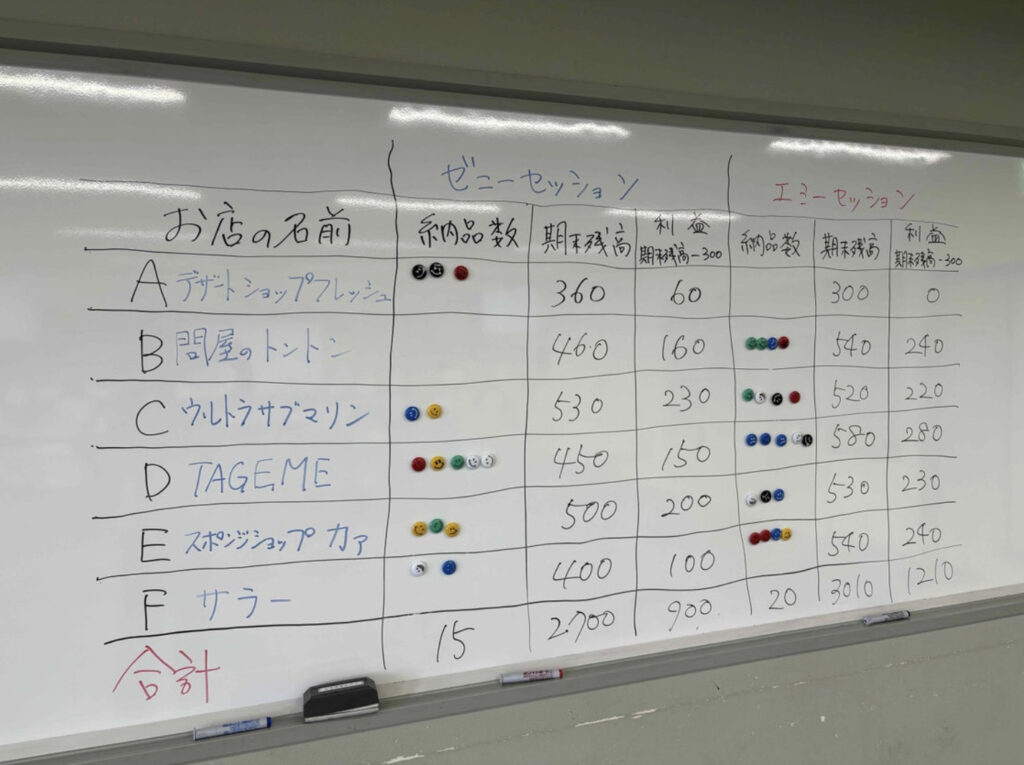 ゼニーセッション エミーセッション
お店の名前 納品数 期末残高 利益 期末残高-300 納品数 期末残高 利益 期末残高-300
A デザートショップフレッシュ 360 60 300 0
B 問屋のトントン 460 160 540 240
C ウルトラサブマリン 530 230 520 220
D TAGEME 450 150 580 280
E スポンジショップ カァ 500 200 530 230
F サラー 400 100 540 240
合計 15 2700 900 20 3010 1210